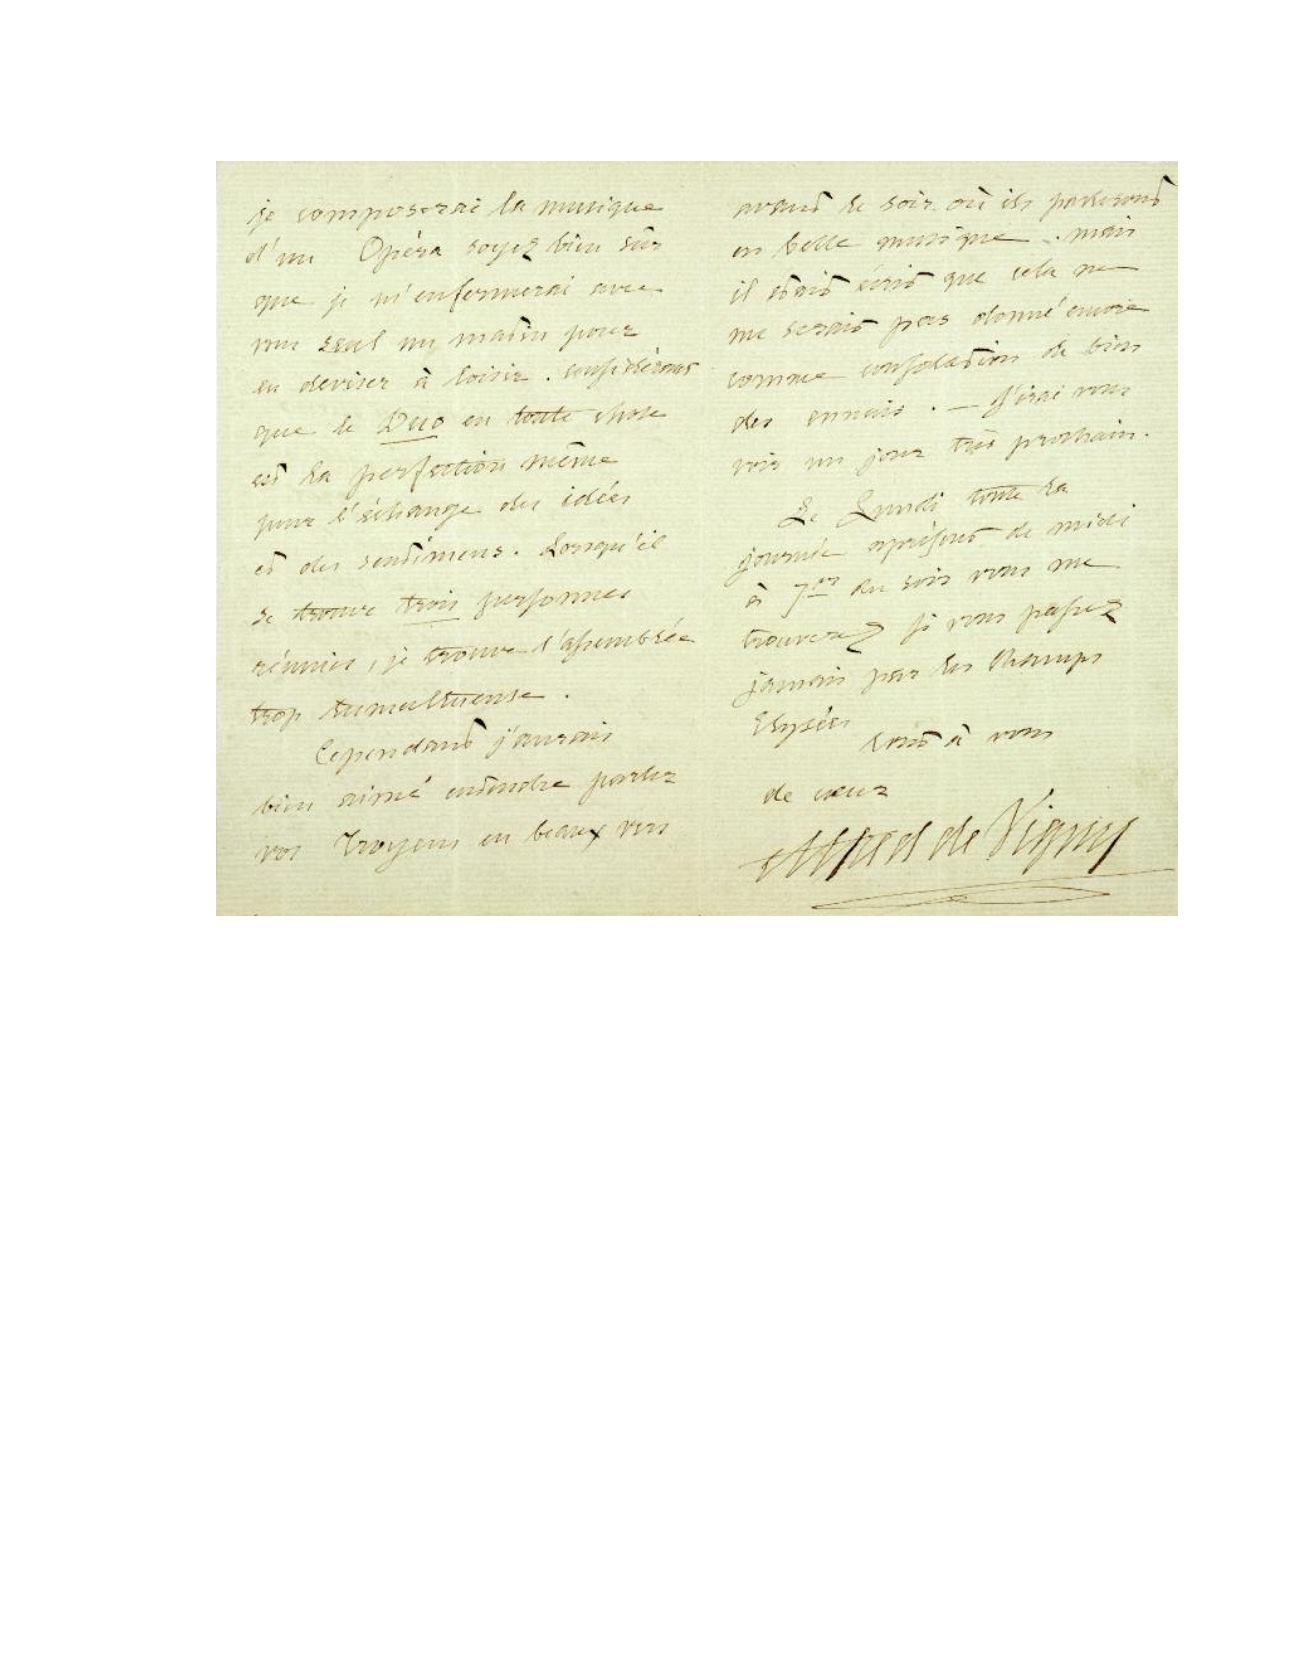 je composerai la musique
d'un Opéra soyez bien sûr
que je m'enfermerai avec
vous seul un matin pour
en deviser à loisir. considérons
que le Duo en toute chose
est la perfection même
pour l'échange des idées
et des sentimens. Lorsqu'il
se trouve trois personnes
réunies, je trouve l'assemblée
trop tumultueuse.
Cependant j'aurais
bien aimé entendre parler
vos Troyens en beaux vers
avant le soir où ils parleront
en belle musique. mais
il était écrit que cela ne
me serait pas donné encore
comme consolation de bien
des ennuis. — J'irai vous
voir un jour très prochain.
Le Lundi toute la
journée à présent de midi
à 7 du soir vous me
trouverez si vous passez
jamais par les Champs
Elysées
tout à vous
de cœur
Alfred de Vigny